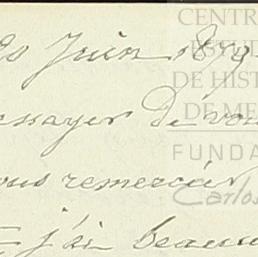 Juin 18
essayer de vou
ous remercier
j'ai beauc
CENTR
ESTUD
DE HIST
DE ME
FUNDA
Carlos